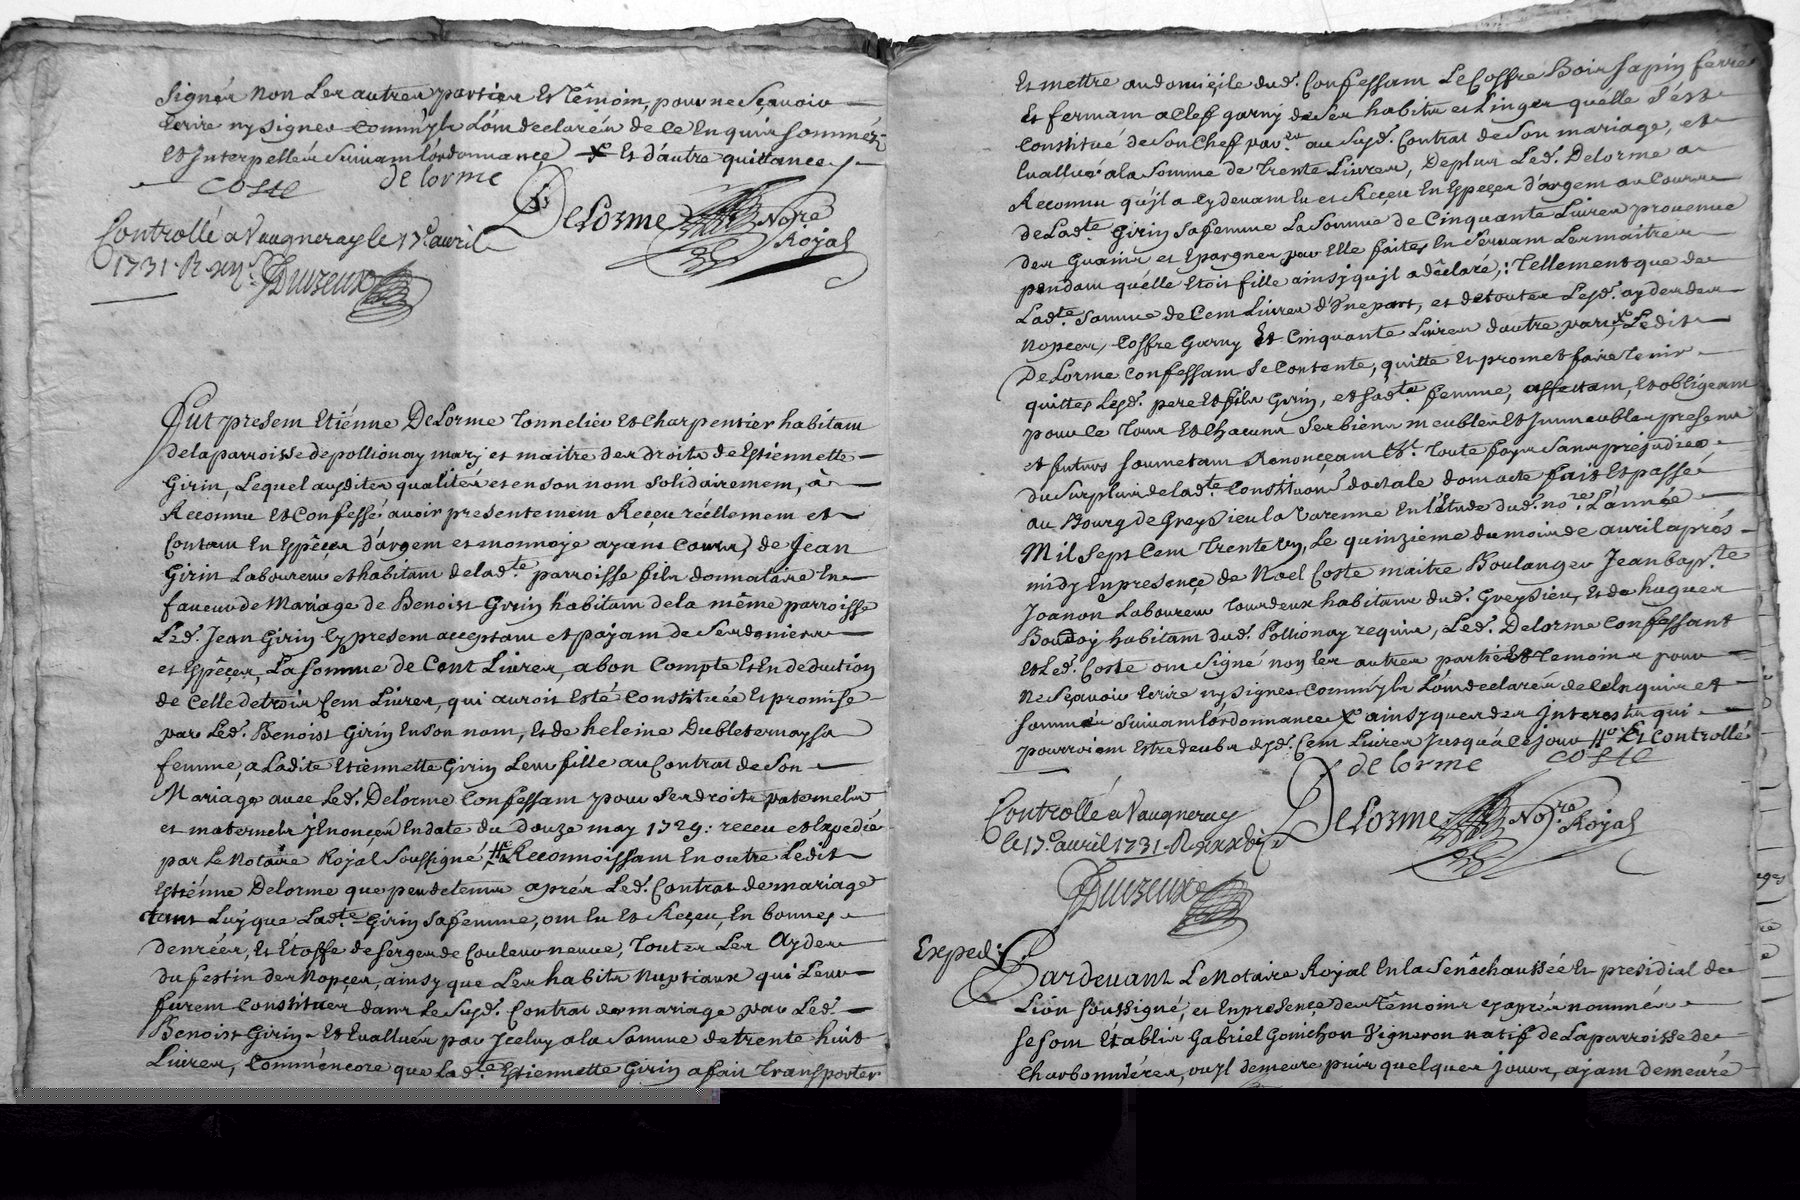 Signés non les autres parties et témoin, pour ne sçavoir
Ecrire ny signer comm'yls l'ont declarés de ce enquis sommés
et Interpellés suivant l'ordonnance x Et d'autre quittance
coste de lorme
DeLorme Nore Royal
Controllé a Vaugneray le 17e avril
1731. R xijs Duvzeux
Fut present Etiénne DeLorme Tonnelier et Charpentier habitant
de la parroisse de pollionay mary et maitre des droits de Estiennette
Girin, Lequel ausdites qualités et en son nom solidairement, à
Reconnu et Confessé avoir presentement Reçeu réellement et
Contant En Espêces d'argent et monnoje ayant Cours, de Jean
Girin Laboureur et habitant de lad.te parroisse fils donnataire En
faveur de Mariage de Benoist Girin habitant de la même parroisse
Led. Jean Girin Cy present acceptant et payant de ses deniers
et Espêces, La somme de Cent Livres, a bon Compte et En deduction
de Celle de trois Cent Livres, qui auroit Esté Constituée et promise
par Led. Benoist Girin En son nom, et de heleine Dubleternay sa
femme, a Ladite Etiennette Girin Leur fille au Contrat de Son
Mariage avec Led. DeLorme Confessant pour ses droits paternels
et maternels y Enonçés En date du douze may 1729: receu et Expedié
par Le Notaire Royal soussigné # Reconnoissant En outre Ledit
Estiénne Delorme que peu de tems aprés Led. Contrat de mariage
tant Luy que Lad.te Girin sa femme, ont Eu et Reçeu, En bonnes
denrées, et Etoffe de serge de Couleur neuve, Toutes Les Aydes
du festin des Nopçes, ainsy que Les habits Nuptiaux qui Leur
furent Constitues dans Le susd. Contrat de mariage par Led.
Benoist Girin et Evallués par Jceluy a la Somme de trente huit
Livres, Comm'encore que Lad.te Estiennette Girin a fait Transporter
Et mettre au domiçile dud. Confessant Le Coffre Bois sapin ferré
Et fermant a Clef garny de ses habits et Linges quelle s'est
Constitué de Son Chef par au susd. Contrat de Son mariage, et
Evallué a la Somme de trente Livres, De plus Led. Delorme a
Reconnu qu'jl a Cy devant Eu et Reçeu En Espeçes d'argent au Cours
de Lad.te Girin sa femme La Somme de Cinquante Livres provenue
des Guains et Epargnes par Elle faites En servant Les maitres
pendant quélle Etoit fille ainsj qu'jl a dêclaré,: Tellement que de
Lad.te Somme de Cent Livres d'Une part, et de toutes Lesd. aydes des
Nopces, Coffre Garny Et Cinquante Livres d'autre part, x Ledit
DeLorme Confessant se Contente, quitte Et promet faire Tenir
quittes Lesd. pere et fils Girin, et sad.te femme, affectant, Et obligeant
pour Ce Tous Et Chacuns ses biens meubles et Jmmeubles presens
et futurs soumettant Renonçeant &c. Toute foys sans prejudice
du surplus de lad.te Constituon doctale dont acte fait Et passé
au Bourg de Greysieu la Varenne En l'Etude dud. nore L'année
Mil sept Cent Trente Un, Le quinzième du mois de avril aprés
midy En presençe de Noel Coste maitre Boulanger Jean bap.te
Joanon Laboureur Tous deux habitans dud. Greysieu, Et de hugues
habitant dud. Pollionay requis, Led. Delorme Confessant
et Led. Coste ont signé non les autres parties et temoins pour
Ne Sçavoir Ecrire ny signer Comm'yls l'ont declarés de Ce Enquis et
sommés suivant l'ordonnance x ainsy que des Interests qui
pourroient Estre deubs desd. Cent Livres Jusqu'a Ce jour # Et Controllé
de lorme coste
Controllé a Vaugneray
le 17e avril 1731. R
DeLorme Nore Royal
Duvzeux
Exped.
Pardevant Le Notaire Royal En la Senêchaussée Et presidial de
Lion soussigné, et En presençe des Témoins cy aprés nommés
se sont Etablis Gabriel Gonichon Vigneron natif de La parroisse de
Charbonniéres, ou jl demeure puis quelques jours, ayant demeuré